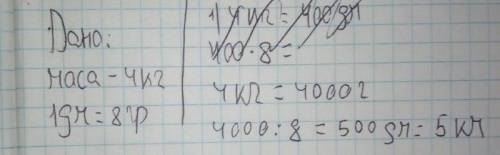 Дано:
маса - 4кг
1дм = 8гр
1) 4кг = 400гл
400 · 8 =
4кг = 4000г
4000 : 8 = 500дм = 5км